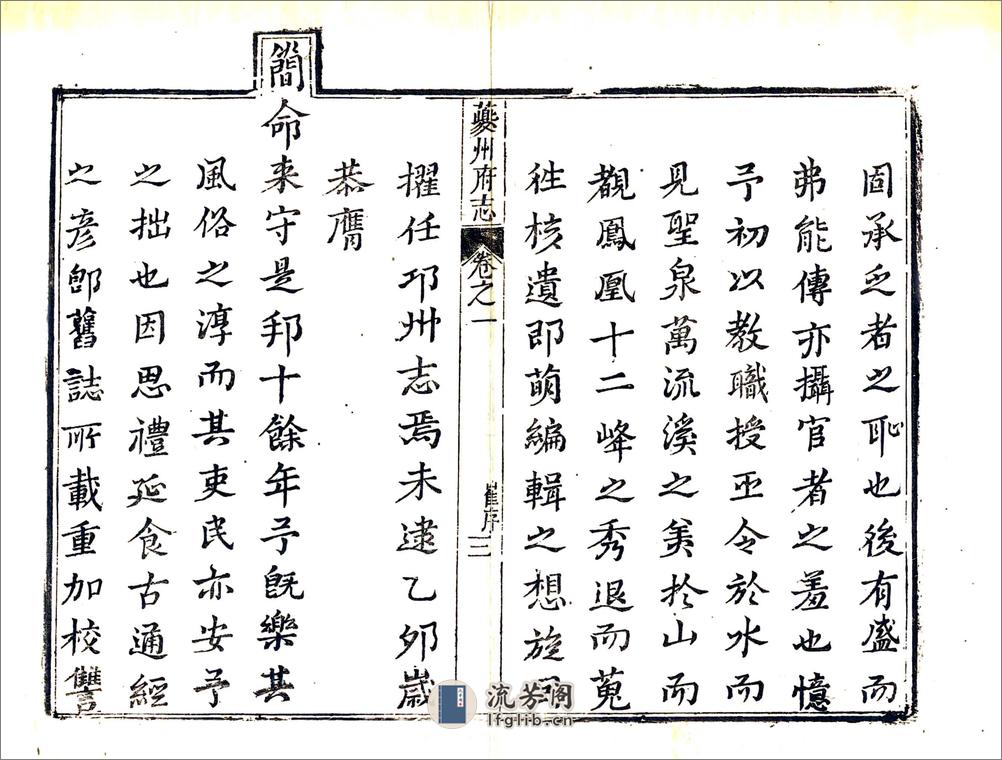 固承乏者之恥也後有盛而
弗能傳亦攝官者之羞也憶
予初以教職授巫令於水而
見聖泉萬流溪之美於山而
覩鳳凰十二峰之秀退而蒐
徃核遺即萌編輯之想旋
夔州府志 卷之一 崔序 三
擢任邛州志焉未逮乙夘歲
恭膺
簡命来守是邦十餘年予既樂其
風俗之淳而其吏民亦安予
之拙也因思禮延食古通經
之彦卽舊誌所載重加校讐
流芳阁
lfglib.cn